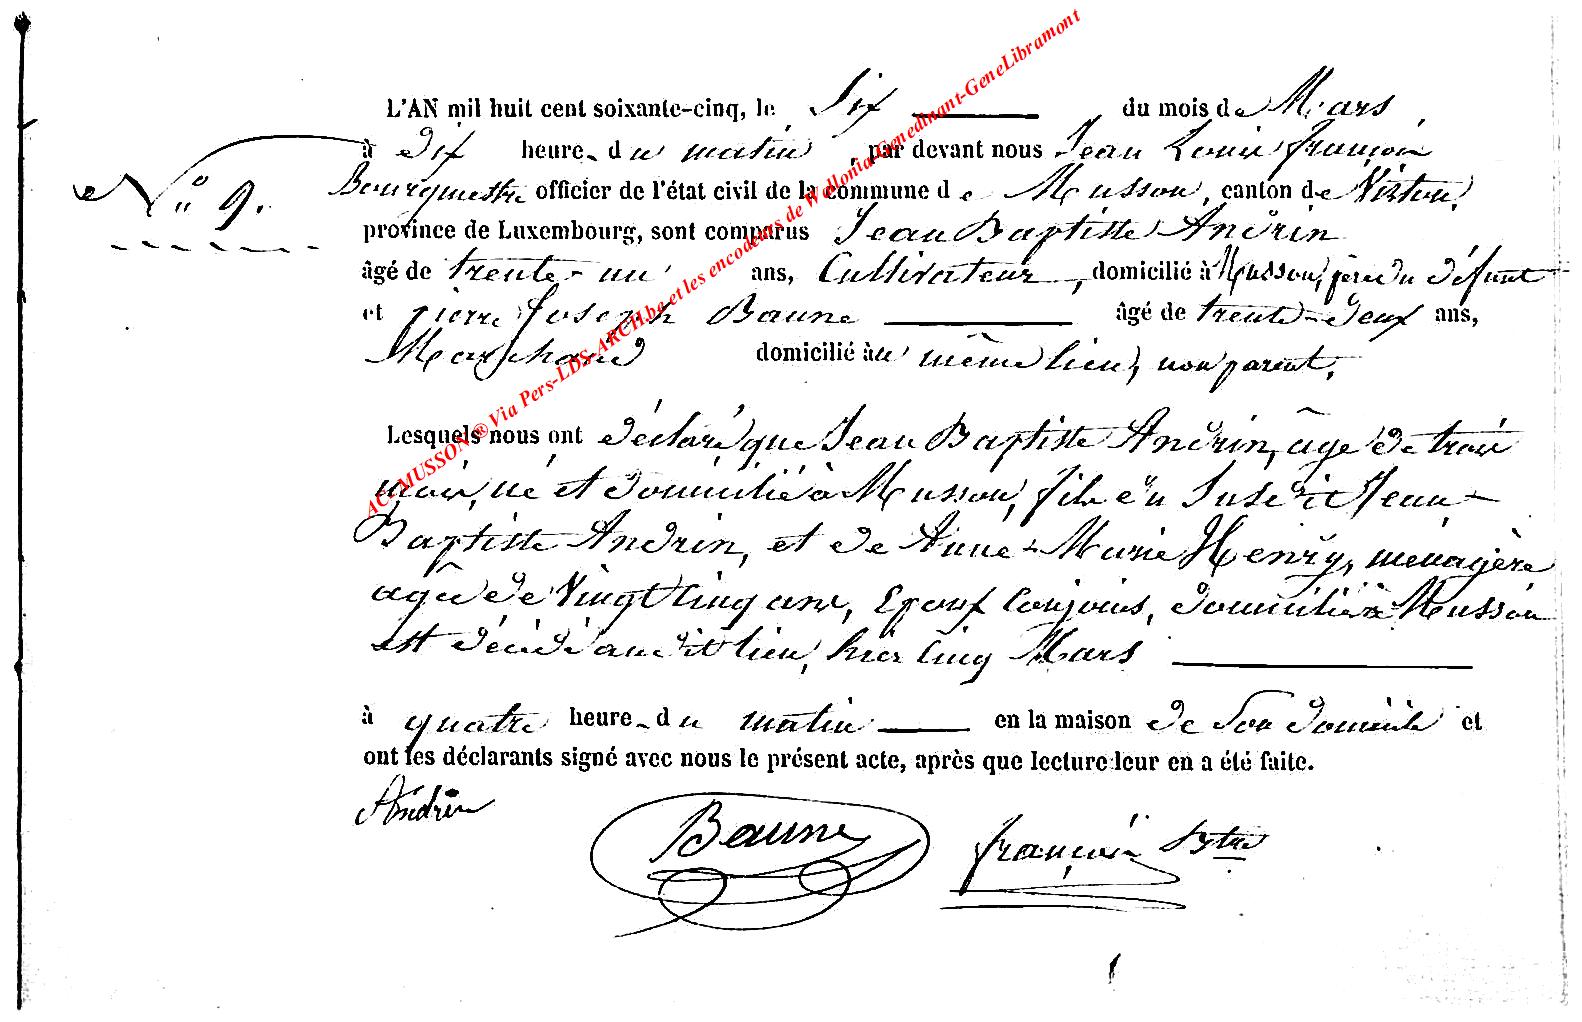 L'AN mil huit cent soixante-cinq, le Six du mois de Mars
à Dix heure du matin, par devant nous Jean Louis françois
N° 9. Bourgmestre officier de l'état civil de la commune de Musson, canton de Virton,
province de Luxembourg, sont comparus Jean Baptiste Andrin
âgé de trente-un ans, Cultivateur, domicilié à Musson, père du défunt
et pierre Joseph Baune âgé de trente-deux ans,
Marchand domicilié au même lieu, non parent.
Lesquels nous ont déclaré que Jean Baptiste Andrin, âgé de trois
mois, né et domicilié à Musson, fils du Susdit Jean-
Baptiste Andrin, et de Anne-Marie Henry, menagère
agée de Vingt Cinq ans, Epoux Conjoins, domiciliés à Musson
est décédé au dit lieu, hier Cinq Mars
à quatre heure du matin en la maison de Son domicile et
ont les déclarants signé avec nous le présent acte, après que lecture leur en a été faite.
Andrin Baune françois Bgtre
AC MUSSON ® Via Pers-LDS-ARCH.be et les encodeurs de Wallonia-Genedinant-GeneLibramont